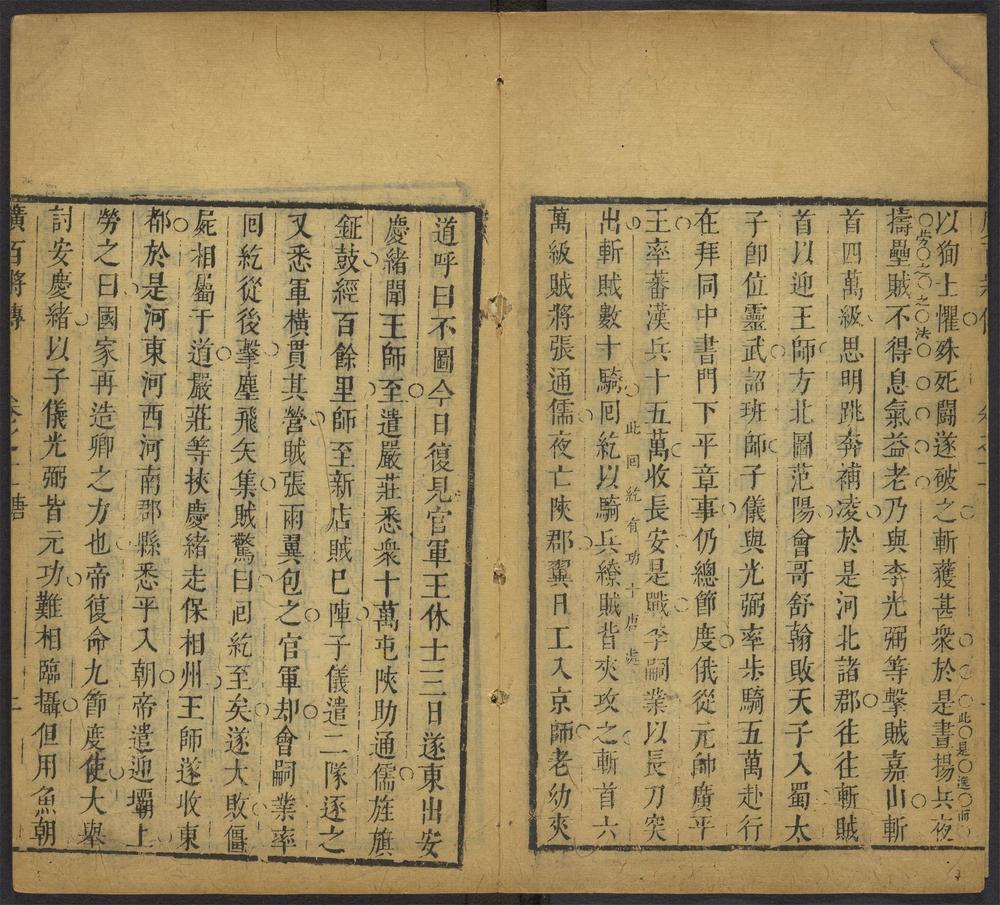 以狥士懼殊死鬬遂破之斬獲甚衆於是晝揚兵夜
擣壘賊不得息氣益老乃與李光弼等擊賊嘉山斬
首四萬級思明跳奔補凌於是河北諸郡往往斬賊
首以迎王師方北圖范陽會哥舒翰敗天子入蜀太
子卽位靈武詔班師子儀與光弼率步騎五萬赴行
在拜同中書門下平章事仍總節度俄從元帥廣平
王率蕃漢兵十五萬收長安是戰李嗣業以長刀突
此回紇有功于唐處
出斬賊數十騎囘紇以騎兵繚賊背夾攻之斬首六
萬級賊將張通儒夜亡陝郡翼日王入京師老幼夾
道呼曰不圖今日復見官軍王休士三日遂東出安
慶緒聞王師至遣嚴莊悉衆十萬屯陝助通儒旌旗
鉦鼓經百餘里師至新店賊已陣子儀遣二隊逐之
又悉軍橫貫其營賊張兩翼包之官軍却會嗣業率
囘紇從後擊塵飛矢集賊驚曰囘紇至矣遂大敗僵
屍相屬于道嚴莊等挾慶緒走保相州王師遂收東
都於是河東河西河南郡縣悉平入朝帝遣迎壩上
勞之曰國家再造卿之力也帝復命九節度使大舉
討安慶緒以子儀光弼皆元功難相臨攝但用魚朝
廣百將傳